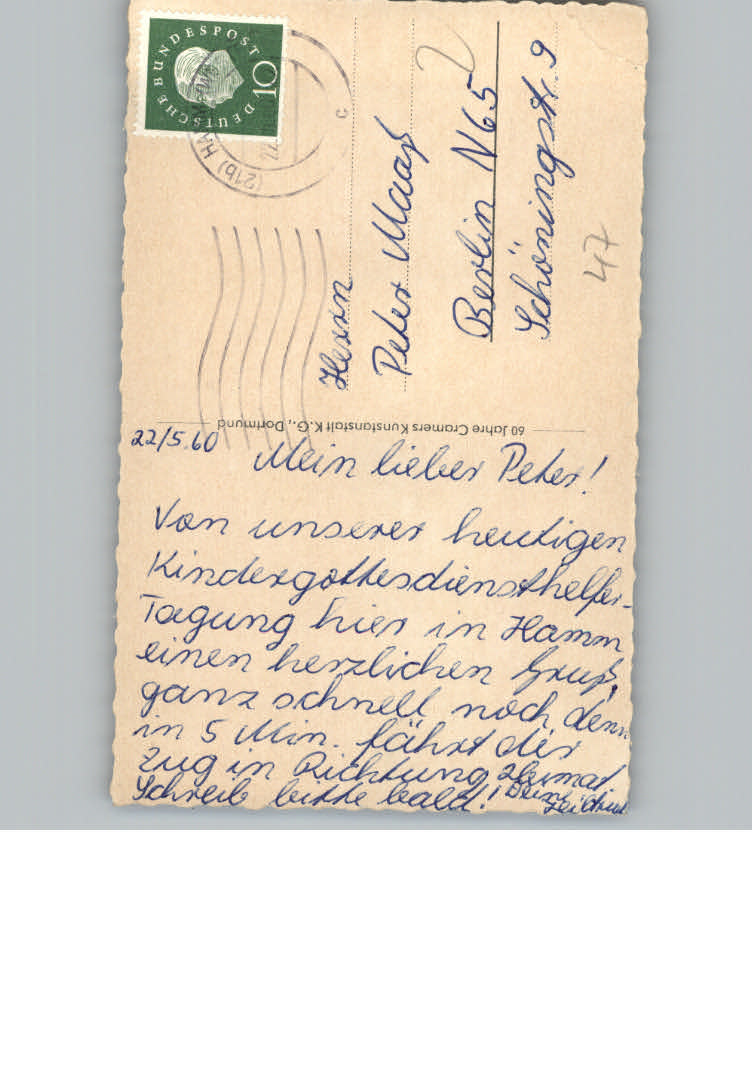 DEUTSCHE BUNDESPOST
10
(21b) HA
c
2
Herrn
Peter Maaß
Berlin N65
Schöningstr. 9
47
60 Jahre Cramers Kunstanstalt K.G., Dortmund
22/5.60
Mein lieber Peter!
Von unserer heutigen
Kindergottesdiensthelfer-
Tagung hier in Hamm
einen herzlichen Gruß,
ganz schnell noch, denn
in 5 Min. fährt der
Zug in Richtung Heimat
Schreib bitte bald! Deine